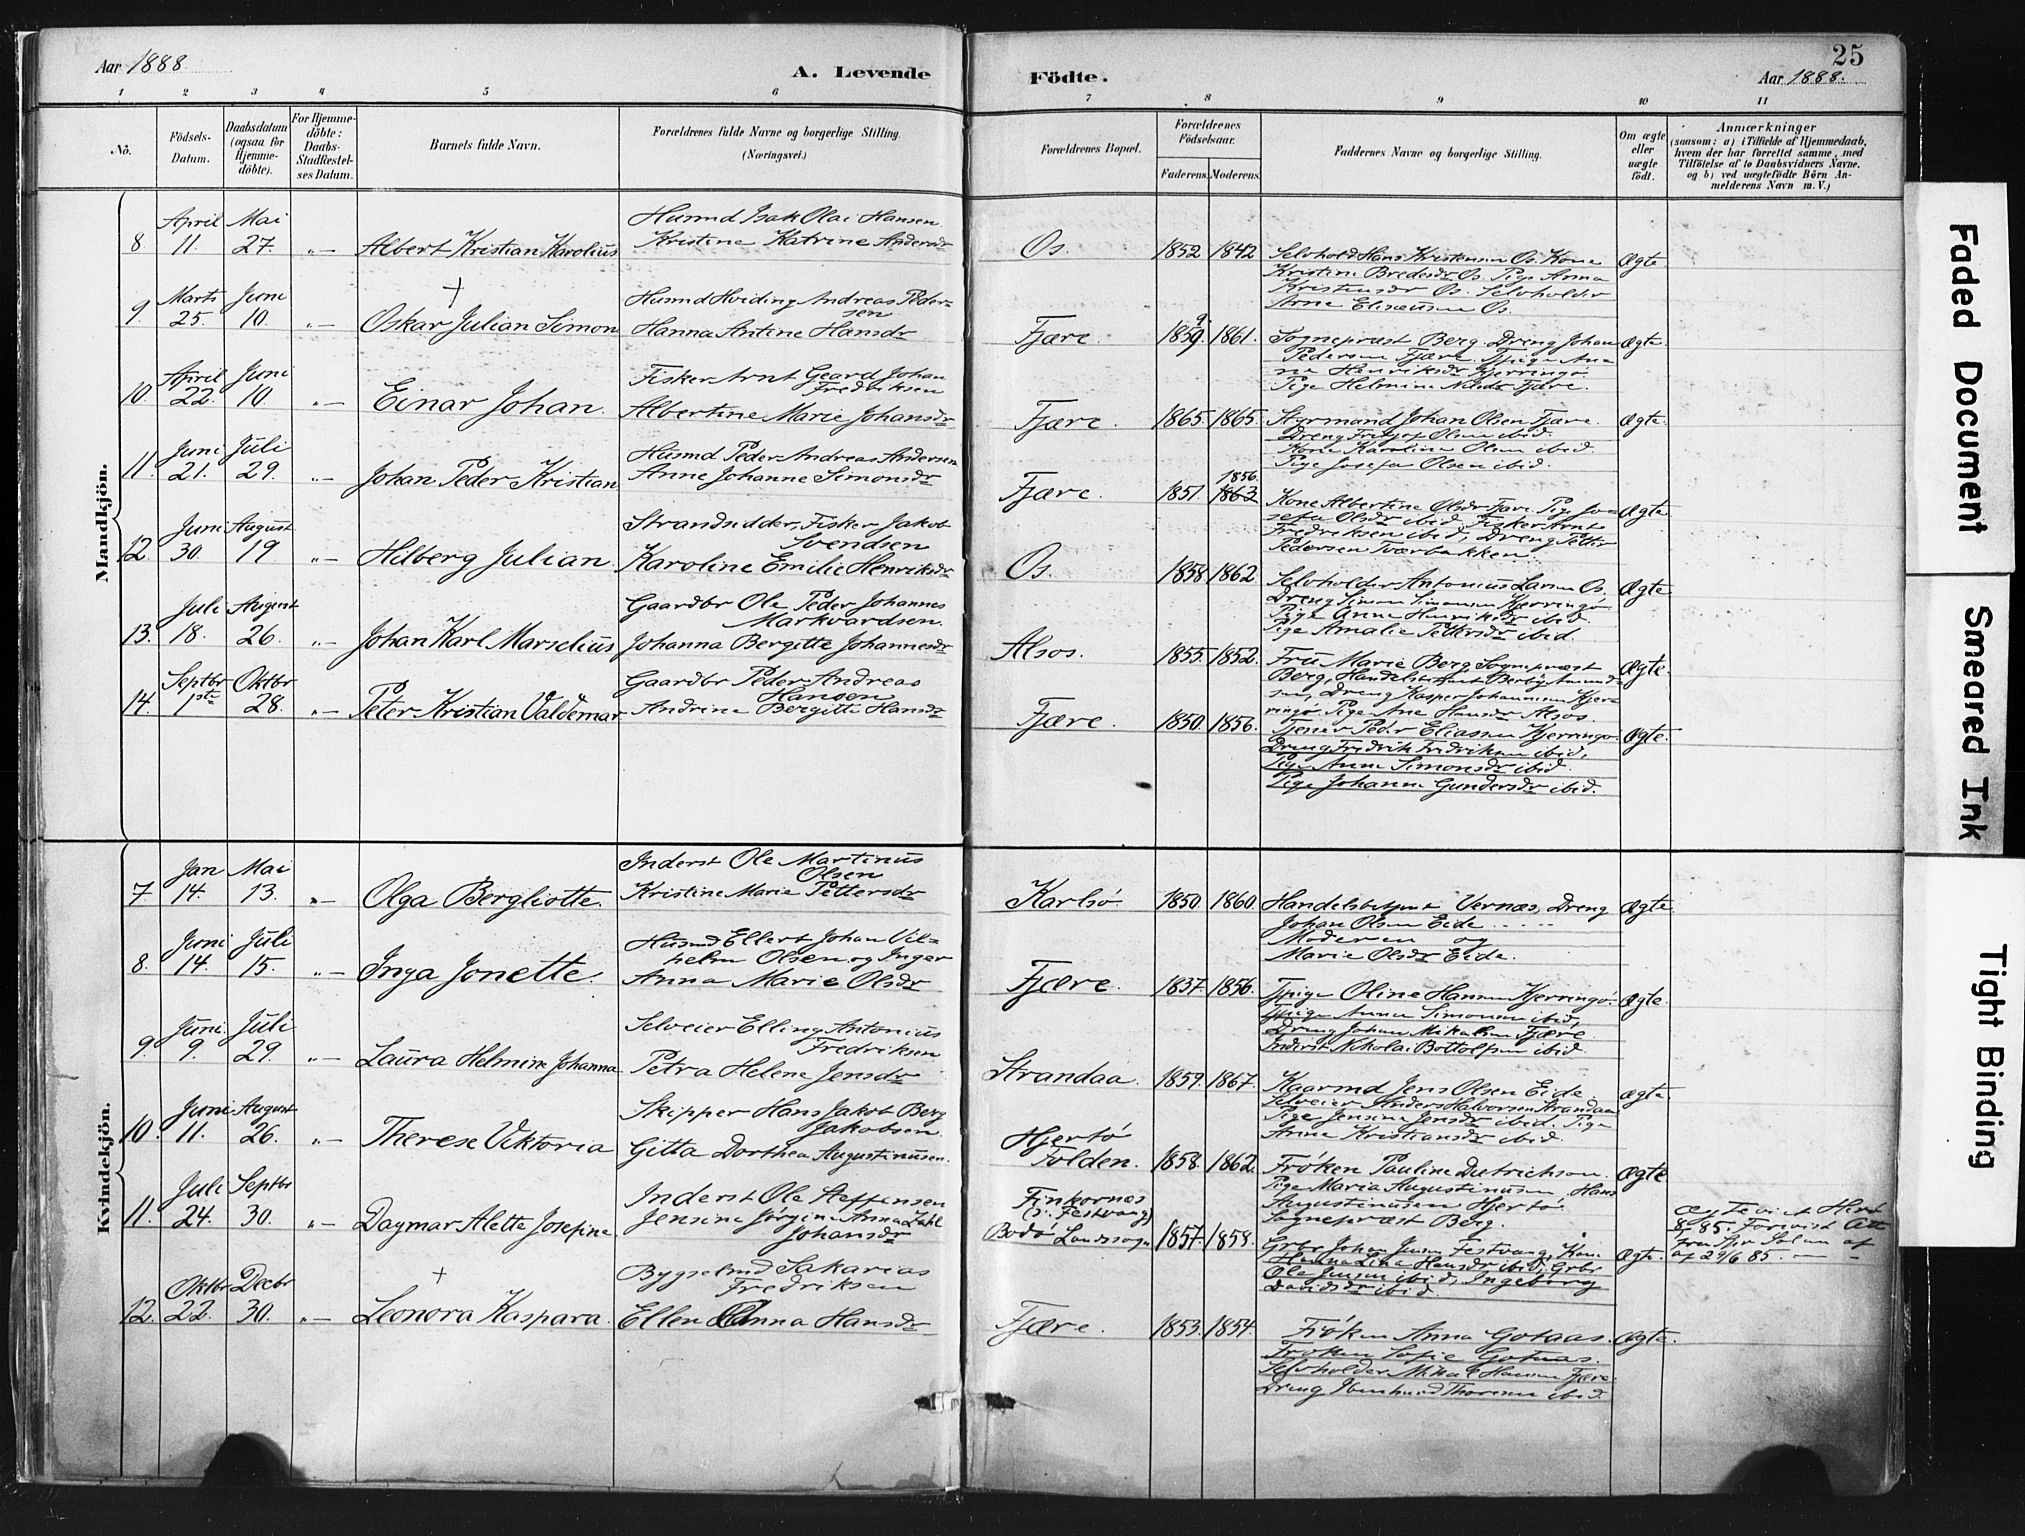 Aar 1888.
A. Levende
Födte.
25
Aar 1888.
1 2 3 4 5 6 7 8 9 10 11
No.
Födsels-Datum.
Daabsdatum (ogsaa for Hjemme-döbte).
For Hjemme-döbte: Daabs-Stadfæstel-ses Datum.
Barnets fulde Navn.
Forældrenes fulde Navne og borgerlige Stilling.
(Næringsvei.)
Forældrenes Bopæl.
Forældrenes Födselsaar.
Faderens. Moderens.
Faddernes Navne og borgerlige Stilling.
Om ægte eller uægte födt.
Anmærkninger
(saasom: a) i Tilfælde af Hjemmedaab,
hvem der har forrettet samme, med
Tilföielse af to Daabsvidners Navne.
og b) ved uægtefödte Börn An-
melderens Navn m. V.)
Mandkjön.
8. April 11. Mai 27. "— Albert Kristian Karolius
Husmd Isak Olai Hansen
Kristine Katrine Andersdr
Os. 1852 1842
Selvhold Hans Kristensen Os. Kone
Kristine Bredesdr Os. Pige Anna
Kristensdr Os. Selvholder
Arne Eliseusen Os.
Ægte
9. Marts 25. Juni 10. "— Oskar Julian Simon
Husmd Hviding Andreas Peder-
sen
Hanna Antine Hansdr
Fjære. 1859. 1861.
Sognepræst Berg. Dreng Johan
Pedersen Fjære. Tjpige An-
na Henriksdr Kjerringø
Pige Helmine Nilsdr Fjære.
Ægte.
10. April 22. Juni 10. "— Einar Johan.
Fisker Arnt Geard Johan
Fredriksen
Albertine Marie Johansdr
Fjære. 1865. 1865.
Styrmand Johan Olsen Fjære.
Dreng Fritjof Olsen ibid.
Kone Karoline Olsen ibid.
Pige Josefa Olsen ibid.
Ægte.
11. Juni 21. Juli 29. "— Johan Peder Kristian
Husmd Peder Andreas Andersen
Anne Johanne Simonsdr
Fjære. 1851. 1856. 1863
Kone Albertine Olsdr Fjære. Pige Jo-
sefa Olsdr ibid, Fisker Arnt
Fredriksen ibid, Dreng Petter
Pedersen Tværbakken.
Ægte
12. Juni 30. August 19 "— Hilberg Julian.
Strandsidder, Fisker Jakob
Svendsen
Karoline Emilie Henriksdr
Os. 1858. 1862.
Selvholder Antonius Larsen Os.
Dreng Simon Simonsen Kjerringø
Pige Anne Henriksdr ibid.
Pige Amalie Pettersdr ibid
Ægte.
13. Juli 18. August 26. "— Johan Karl Marselius
Gaardbr Ole Peder Johannes
Markvardsen.
Johanna Bergitte Johannesdr
Alsos. 1855. 1852.
Fru Marie Berg, Sognepræst
Berg, Dreng Kasper Johannesen Kjer-
ringø Pige Ane Hansdr Alsos.
Ægte.
14. Septbr 1ste Oktbr 28. "— Peter Kristian Valdemar
Gaardbr Peder Andreas
Hansen
Andrine Bergitte Hansdr
Fjære. 1850. 1856.
Tjener Peder Eliassen Kjerringø
Dreng Fredrik Fredriksen ibid,
Pige Anne Simonsdr ibid.
Pige Johanne Gundersdr ibid.
Ægte.
Kvindekjön.
7 Jan 14. Mai 13. "— Olga Bergliotte.
Inderst Ole Martinus
Olsen
Kristine Marie Pettersdr
Karlsø 1850. 1860.
Vernæs, Dreng
Johan Olsen Eide
Moderen og
Marie Olsdr Eide.
Ægte.
8. Juni 14. Juli 15. "— Inga Jonette.
Husmd Ellert Johan Vil-
helm Olsen og Inger
Anna Marie Olsdr
Fjære. 1837. 1856.
Tjpige Oline Hansen Kjerringø.
Tjpige Anna Simonsen ibid,
Dreng Johan Mikalsen Fjære
Inderst Nikolai Bottolfsen ibid
Ægte.
9. Juni 9. Juli 29. "— Laura Helmine Johanna
Selveier Elling Antonius
Fredriksen
Petra Helene Jensdr
Strandaa. 1859. 1867.
Kaarmd Jens Olsen Eide
Selveier Anders Halvorsen Strandaa
Pige Jensine Jensdr ibid. Pige
Anne Kristiansdr ibid.
Ægte
10. Juni 11. August 26. "— Therese Viktoria
Skipper Hans Jakob Berg
Jakobsen.
Gitta Dorthea Augustinusen.
Hjertø Folden. 1858. 1862.
Frøken Pauline Dietrichson.
Pige Maria Augustinusen, Hans
Augustinusen Hjertø
Sognepræst Berg.
Ægte
11. Juli 24. Septbr 30. "— Dagmar Alette Josefine
Inderst Ole Steffensen
Jensine Jørgine Anna Zahl
Johansdr
Finkornæs
(v. Festvaag)
Bodø Landssogn 1857. 1858.
Grbr Johan Jensen Festvaag, Kone
Hanna Lina Hansdr ibid, Grbr
Ole Jensen ibid, Ingeborg
Davidsdr ibid.
Ægte.
12. Oktbr 22. Decbr 30. "— Leonora Kaspara.
Bygselmd Sakarias
Fredriksen
Ellen Anna Hansdr
Fjære. 1853. 1854.
Frøken Anna Gotaas.
Frøken Sofie Gotaas.
Selvholder Mikal Hansen Fjære
Dreng Thoresen ibid.
Ægte.
Faded Document
Smeared Ink
Tight Binding